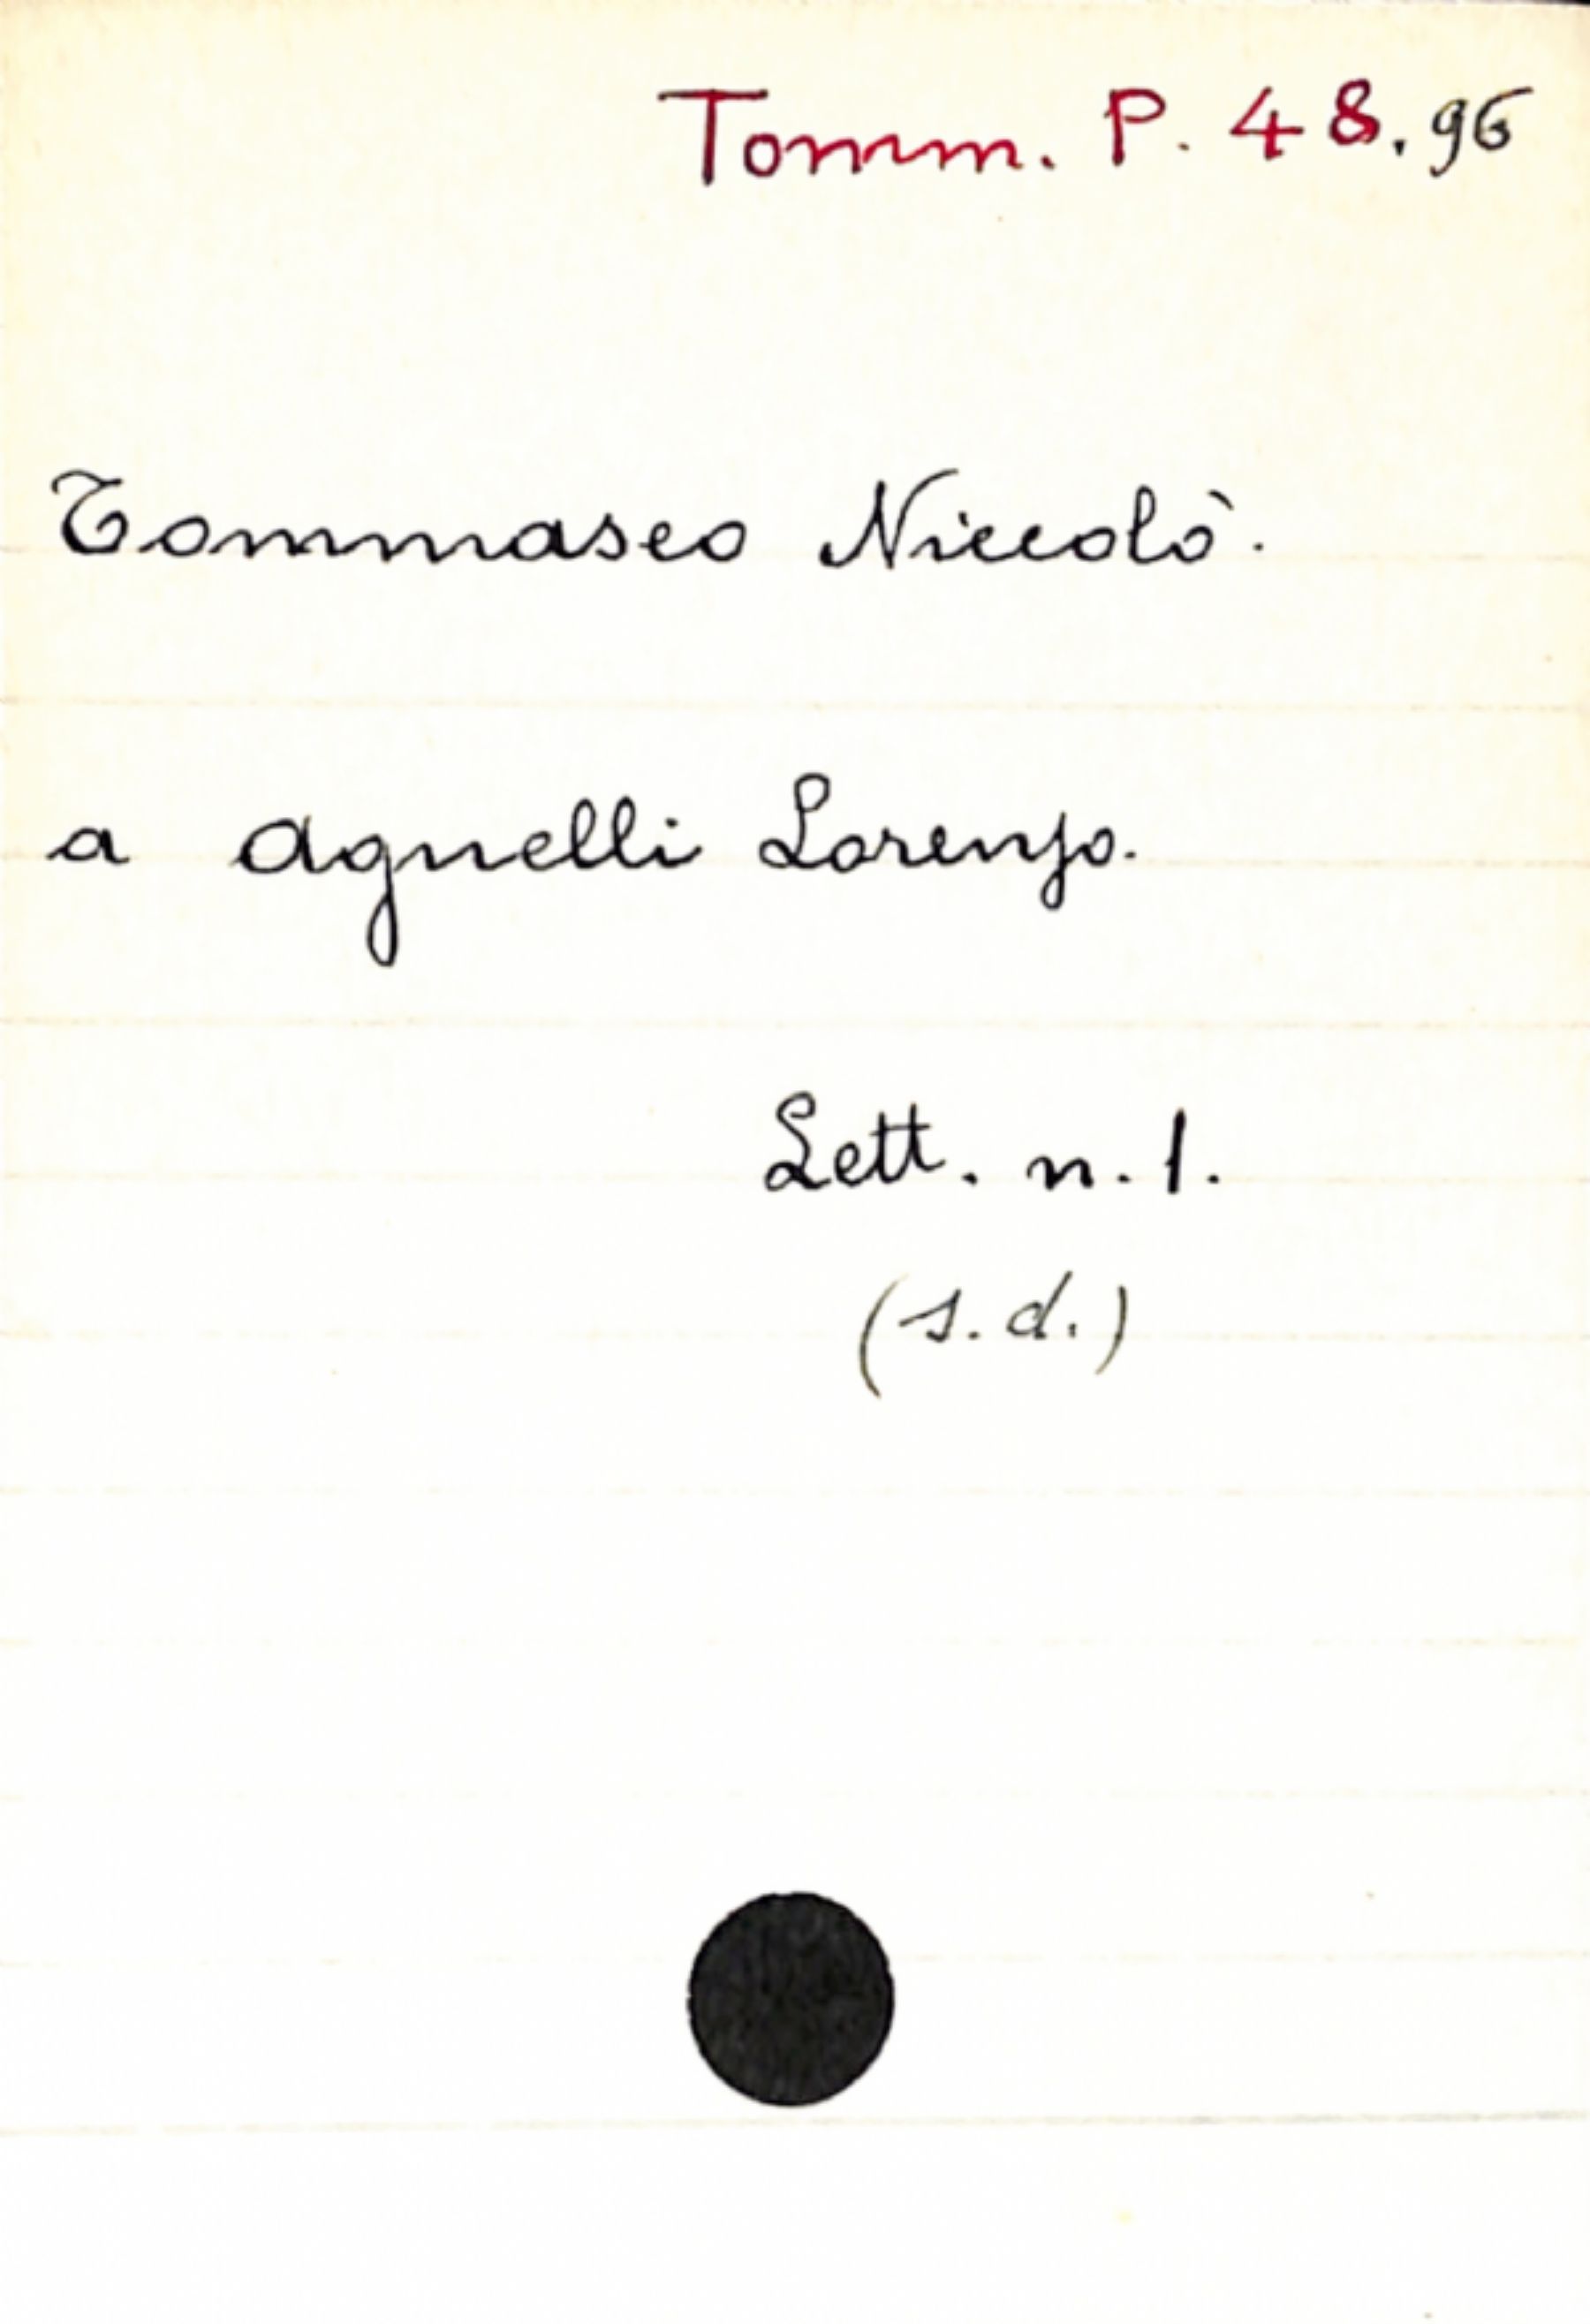 Tomm. P. 48.96
Tommaseo Niccolò.
a Agnelli Lorenzo.
Lett. n. 1.
(s.d.)